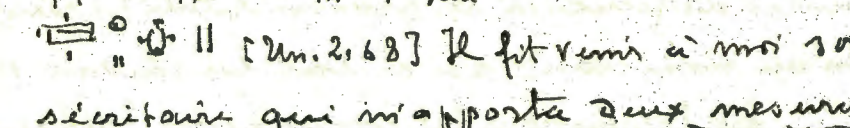 [Un. 2,68] Il fit venir à moi so
sécritaire qui m'apporta deux mesur